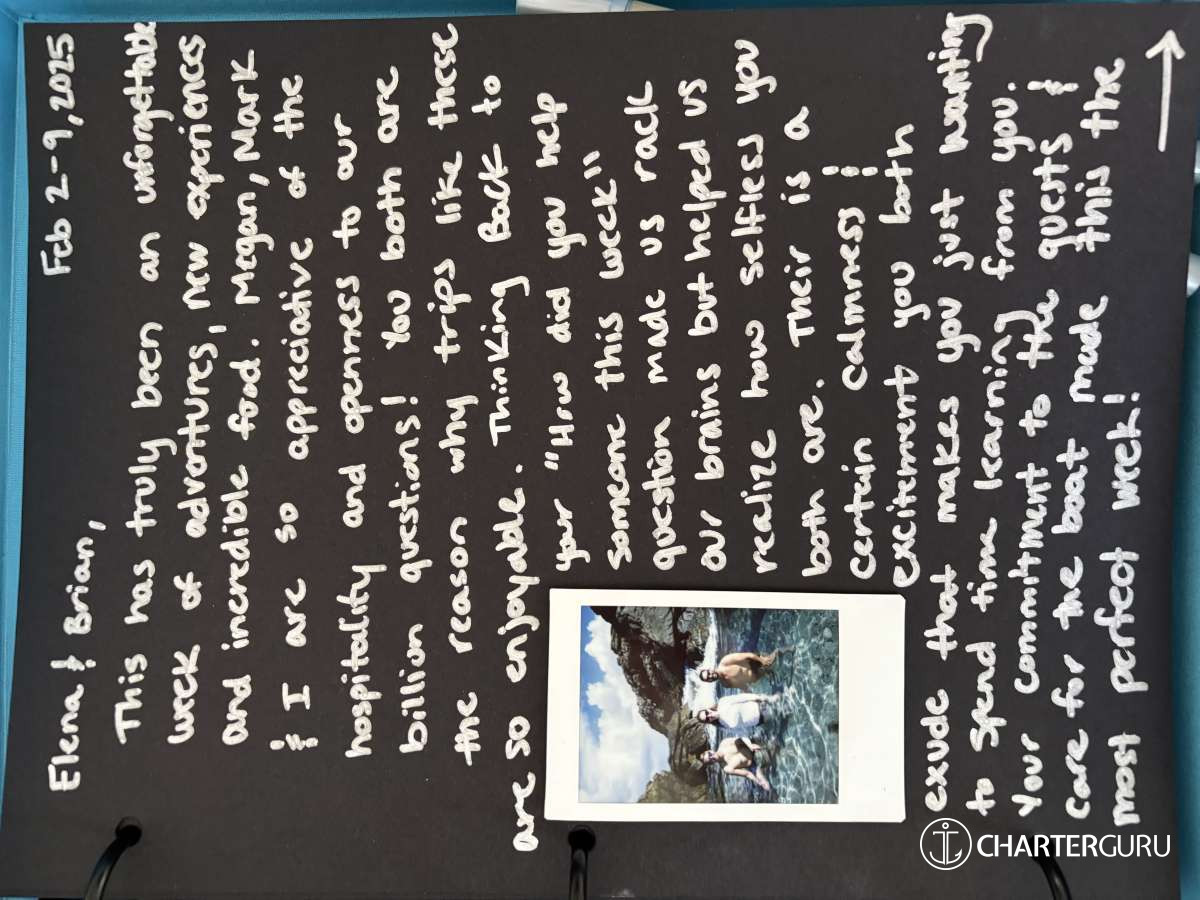 Feb 2-9, 2025
Elena & Brian,
This has truly been an unforgettable
week of adventures, new experiences
and incredible food. Megan, Mark
& I are so appreciative of the
hospitality and openness to our
billion questions! You both are
the reason why trips like these
are so enjoyable. Thinking Back to
your "How did you help
someone this week"
question made us rack
our brains but helped us
realize how selfless you
both are. Their is a
certain calmness &
excitement you both
exude that makes you just wanting
to spend time learning from you.
Your commitment to the guests &
care for the boat made this the
most perfect week!
→
CHARTERGURU